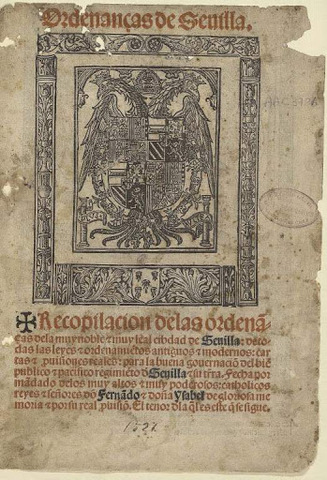 Ordenanças de Seuilla.
✠ Recopilacion delas ordenã
ças dela muy noble & muy leal cibdad de Seuilla: de to
das las leyes & ordenamiẽtos antiguos & modernos: car
tas & puisiones reales: para la buena gouernaciõ del biẽ
publico & pacifico regimiẽto dSeuilla & su trra. Fecha por
mãdado delos muy altos & muy poderosos: catholicos
reyes & señores dõ Fernãdo & doña Ysabel de gloriosa me
moria & por su real puisiõ. El tenor dla ql es este q se sigue.
1527